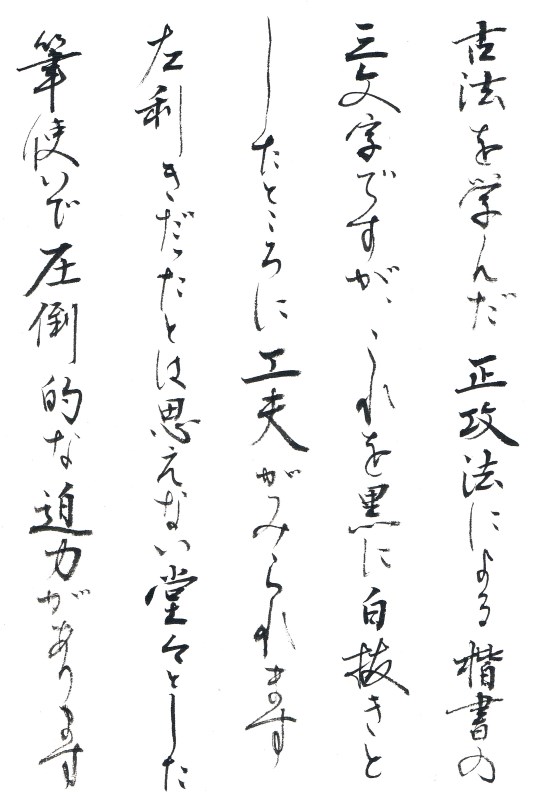 古法を学んだ正攻法による楷書の
三文字ですが、これを黒に白抜きと
したところに工夫がみられます
左利きだったとは思えない堂々とした
筆使いで圧倒的な迫力があります